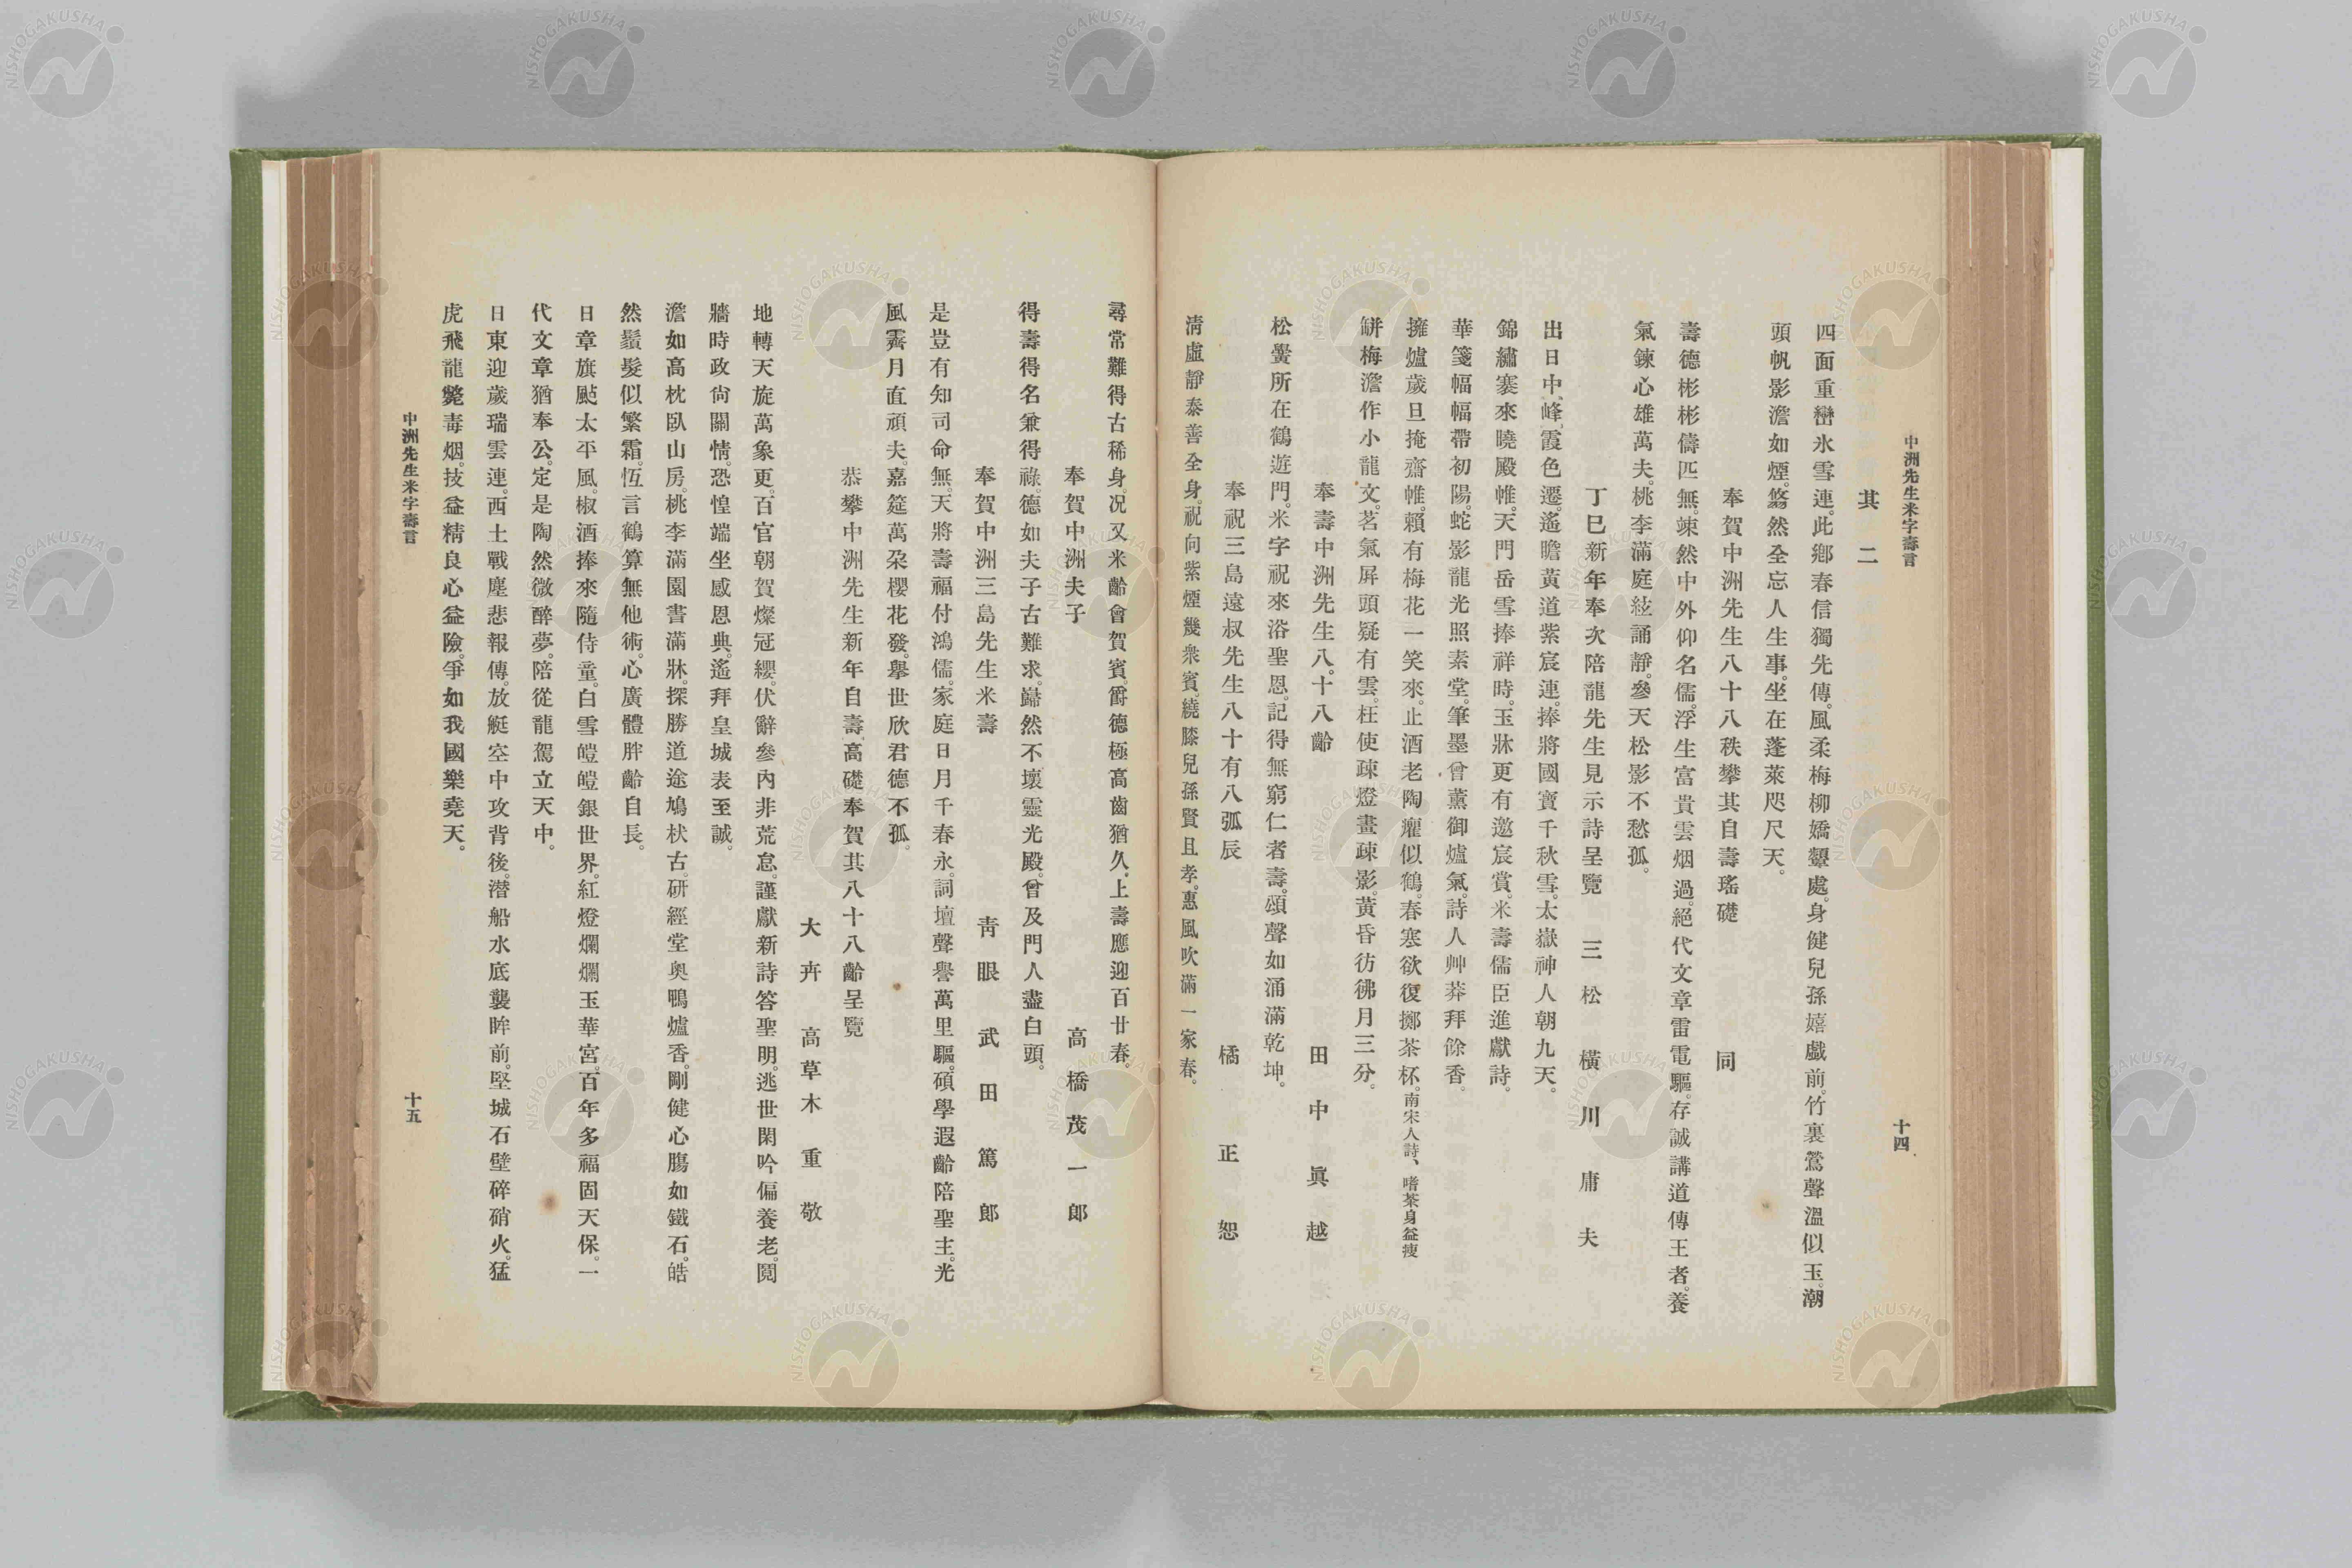 中洲先生米字壽言
十四
其二
四面重巒氷雪連。此鄕春信獨先傳。風柔梅柳嬌顰處。身健兒孫嬉戲前。竹裏鶯聲溫似玉。潮
頭帆影澹如煙。翛然全忘人生事。坐在蓬萊咫尺天。
奉賀中洲先生八十八秩攀其自壽瑤礎 同
壽德彬彬儔匹無。竦然中外仰名儒。浮生富貴雲烟過。絕代文章雷電驅。存誠講道傳王者。養
氣鍊心雄萬夫。桃李滿庭絃誦靜。參天松影不愁孤。
丁巳新年奉次陪龍先生見示詩呈覽 三松 橫川庸夫
出日中峰霞色遷。遙瞻黃道紫宸連。捧將國寶千秋雪。太嶽神人朝九天。
錦繡褰來曉殿帷。天門岳雪捧祥時。玉牀更有邀宸賞。米壽儒臣進獻詩。
華箋幅幅帶初陽。蛇影龍光照素堂。筆墨曾薰御爐氣。詩人艸莽拜餘香。
擁爐歲旦掩齋帷。賴有梅花一笑來。止酒老陶癯似鶴。春寒欲復擲茶杯。南宋人詩、嗜茶身益瘦
缾梅澹作小龍文。茗氣屛頭疑有雲。枉使疎燈畫疎影。黃昏彷彿月三分。
奉壽中洲先生八十八齡 田中眞越
松黌所在鶴遊門。米字祝來浴聖恩。記得無窮仁者壽。頌聲如涌滿乾坤。
奉祝三島遠叔先生八十有八弧辰 橘正恕
淸虛靜泰善全身。祝向紫煙幾衆賓。繞膝兒孫賢且孝。惠風吹滿一家春。
尋常難得古稀身。况又米齡會賀賓。爵德極高齒猶久。上壽應迎百廿春。
奉賀中洲夫子 高橋茂一郞
得壽得名兼得祿。德如夫子古難求。巋然不壞靈光殿。曾及門人盡白頭。
奉賀中洲三島先生米壽 靑眼 武田篤郞
是豈有知司命無。天將壽福付鴻儒。家庭日月千春永。詞壇聲譽萬里驅。碩學遐齡陪聖主。光
風霽月直頑夫。嘉筵萬朶櫻花發。擧世欣君德不孤。
恭攀中洲先生新年自壽高礎奉賀其八十八齡呈覽
大卉 高草木重敬
地轉天旋萬象更。百官朝賀燦冠纓。伏辭參內非荒怠。謹獻新詩答聖明。逃世閑吟偏養老。鬩
牆時政尙關情。恐惶端坐感恩典。遙拜皇城表至誠。
澹如高枕臥山房。桃李滿園書滿牀。探勝道途鳩杖古。硏經堂奧鴨爐香。剛健心膓如鐵石。皓
然鬚髮似繁霜。恆言鶴算無他術。心廣體胖齡自長。
日章旗颭太平風。椒酒捧來隨侍童。白雪皚皚銀世界。紅燈爛爛玉華宮。百年多福固天保。一
代文章猶奉公。定是陶然微醉夢。陪從龍駕立天中。
日東迎歲瑞雲連。西土戰塵悲報傳。放艇空中攻背後。潜船水底襲眸前。堅城石壁碎硝火。猛
虎飛龍斃毒烟。技益精良心益險。爭如我國樂堯天。
中洲先生米字壽言
十五